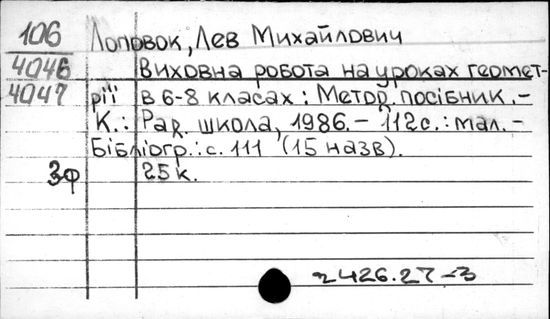 106 Лоповок, Лев Михайлович
4046 Виховна робота на уроках геомет-
4047 рії в 6-8 класах : Метод. посібник. -
К.: Рад. школа, 1986. - 112 с. : мал. -
Бібліогр.: с. 111 (15 назв).
3ф 25 к.
2426.27-3